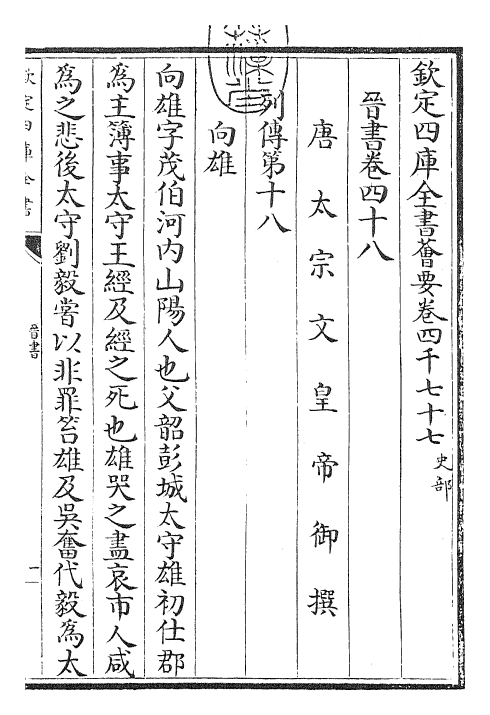 欽定四庫全書薈要卷四千七十七 史部
晉書卷四十八
唐太宗文皇帝御撰
列傳第十八
向雄
向雄字茂伯河内山陽人也父韶彭城太守雄初仕郡
為主簿事太守王經及經之死也雄哭之盡哀市人咸
為之悲後太守劉毅嘗以非罪笞雄及吳奮代毅為太
欽定四庫全書
晉書
一